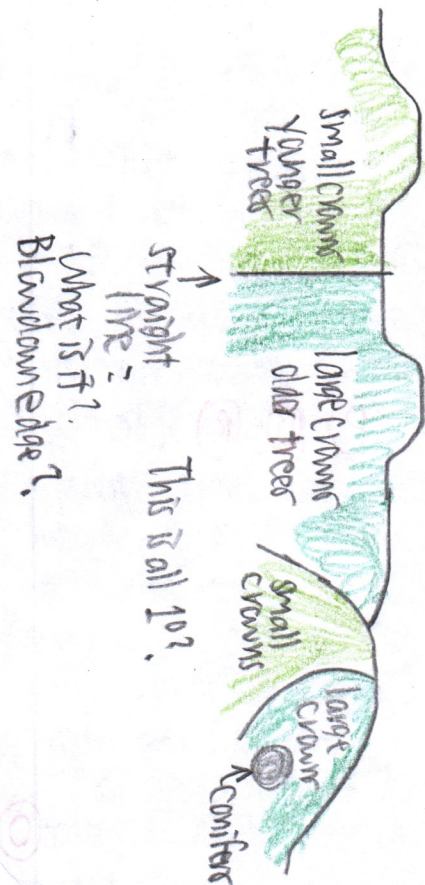 small crowns
younger
trees
large crowns
older trees
small
crowns
large
crowns
conifers
straight
line =
What is it?
Blowdown edge?
This is all 1°?